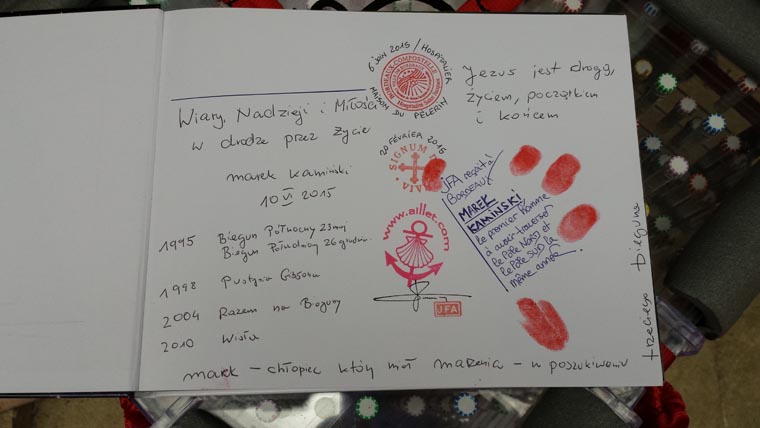 Wiary, Nadziei i Miłości
w drodze przez życie
marek kamiński
10 VI 2015
1995 Biegun Północny 23 maj
Biegun Południowy 26 grudnia
1998 Pustynia Gibsona
2004 Razem na Bieguny
2010 Wisła
marek - chłopiec który miał marzenia - w poszukiwaniu
trzeciego bieguna
6 juin 2015 / HOSPITALIER
MAISON DU PÈLERIN
BORDEAUX COMPOSTELLE
20 FÉVRIER 2015
SIGNUM
www.aillet.com
JFA
Jezus jest drogą,
życiem, początkiem
i końcem
JFA reçoit à
BORDEAUX
MAREK
KAMINSKI
le premier homme
à avoir traversé
le pôle NORD et
le pôle SUD la
même année.